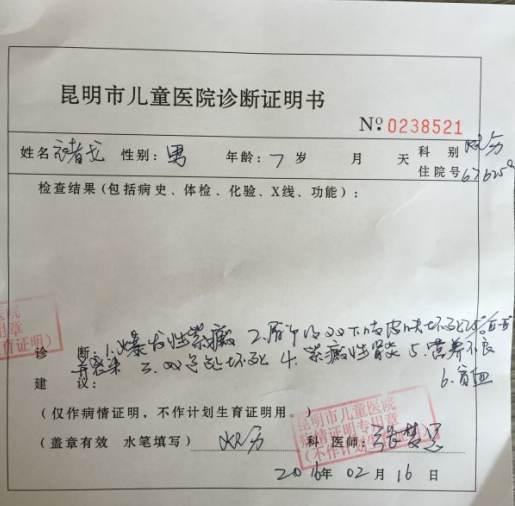 昆明市儿童医院诊断证明书
№ 0238521
姓名 褚戈 性别: 男 年龄: 7 岁 月 天 科别
住院号 676259
检查结果(包括病史、体检、化验、X线、功能):
诊断 1.爆发性紫癜 2.臀部及双下肢皮肤坏死
并感染 3.双足趾坏死 4.紫癜性肾炎 5.营养不良
建议: 6.贫血
(仅作病情证明,不作计划生育证明用。)
(盖章有效 水笔填写) 科 医师: 张梦思
2016年 02月 16日
昆明市儿童医院
病情证明专用章